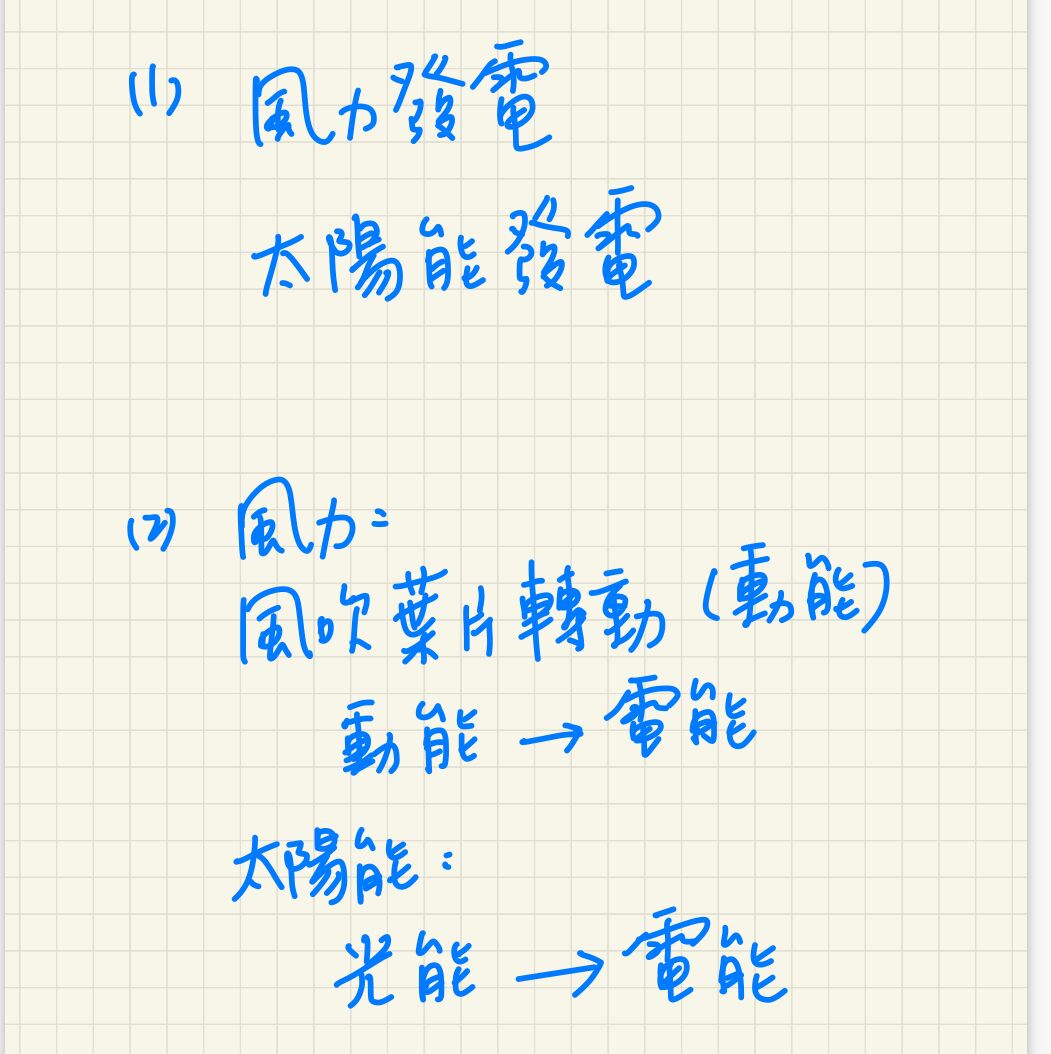 (1) 風力發電
太陽能發電
(2) 風力:
風吹葉片轉動(動能)
動能 → 電能
太陽能:
光能 → 電能